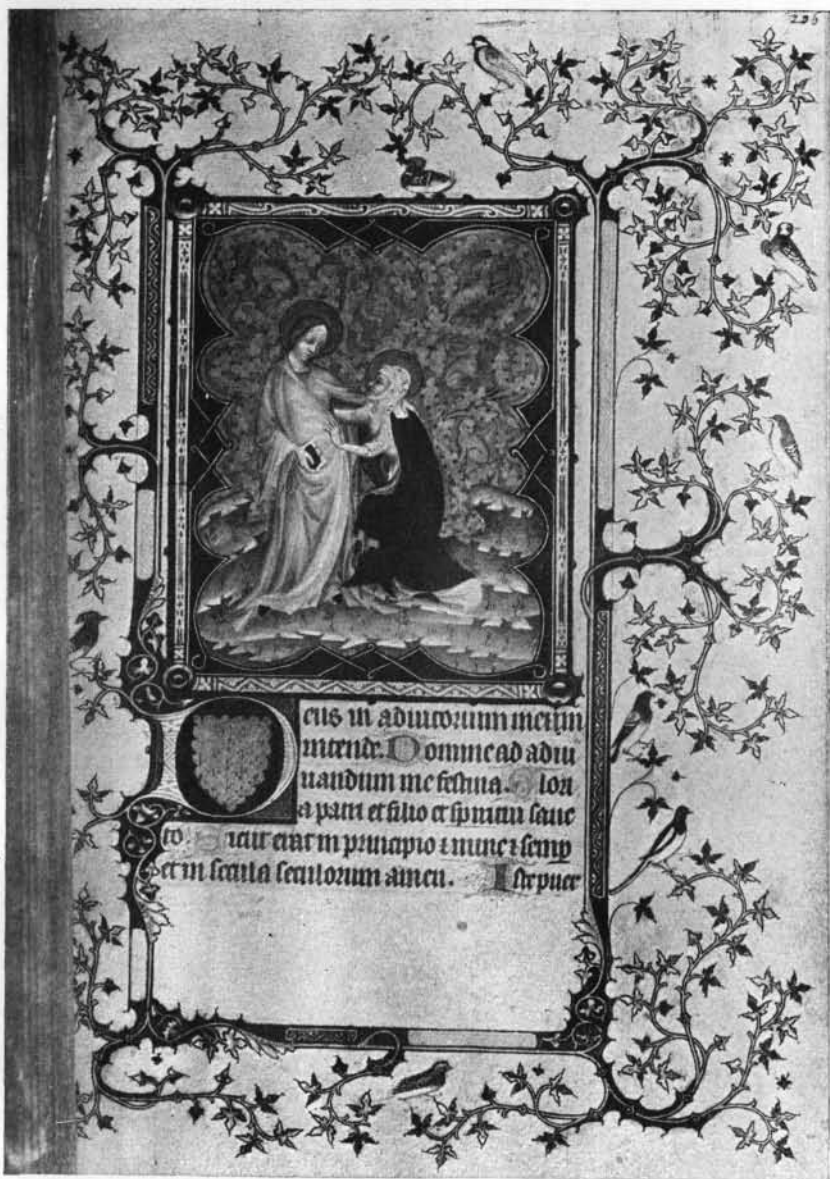 226
Deus in adiutorium meum
intende. Domine ad adiu
uandum me festina. Glori
a patri et filio et spiritui sanc
to. Sicut erat in principio ⁊ nunc ⁊ semp
et in secula seculorum amen. Iste puer